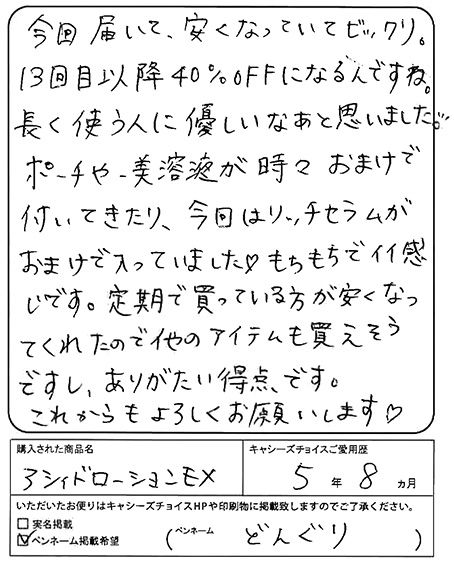 今回届いて、安くなっていてビックリ。
13回目以降40%OFFになるんですね。
長く使う人に優しいなあと思いました。
ポーチや美溶液が時々おまけで
付いてきたり、今回はリッチセラムが
おまけで入っていました♡もちもちでイイ感
じです。定期で買っている方が安くなっ
てくれたので他のアイテムも買えそう
ですし、ありがたい得点です。
これからもよろしくお願いします♡
購入された商品名
キャシーズチョイスご愛用歴
アシィドローションEX
5年8ヵ月
いただいたお便りはキャシーズチョイスHPや印刷物に掲載致しますのでご了承ください。
□実名掲載
☑ペンネーム掲載希望
(ペンネーム どんぐり )